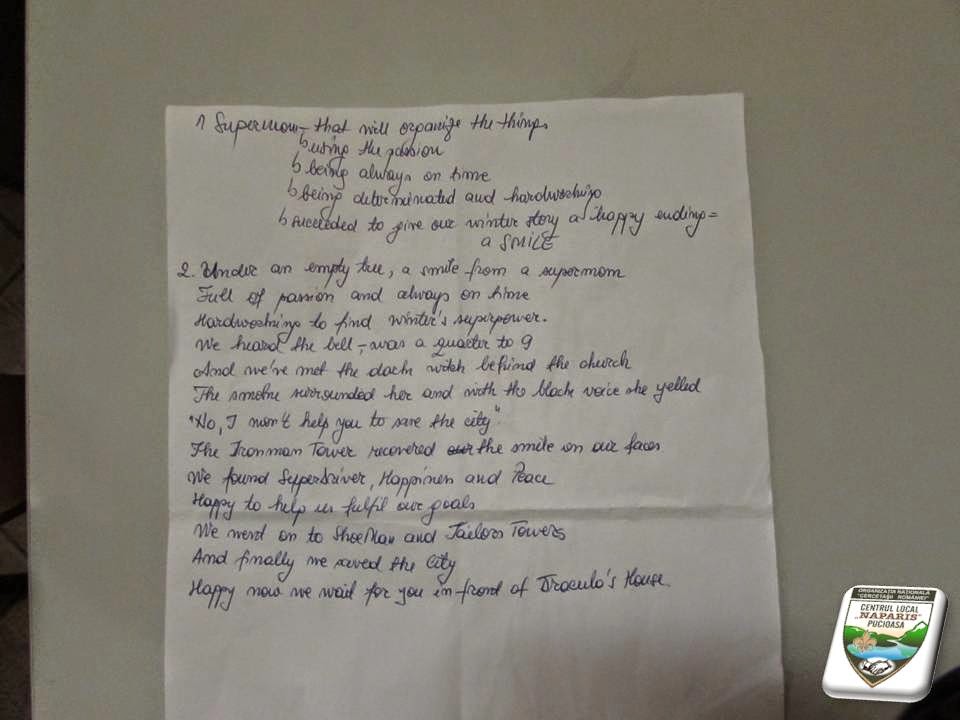 1 Supermom – that will organize the things
↳ using the passion
↳ being always on time
↳ being determinated and hardworking
↳ succeeded to give our winter story a happy ending =
a SMILE
2. Under an empty tree, a smile from a supermom
Full of passion and always on time
Hardworking to find winter's superpower.
We heard the bell – was a quarter to 9
And we've met the dark witch behind the church
The smoke surrounded her and with the black voice she yelled
"No, I won't help you to save the city"
The Ironman Tower recovered our the smile on our faces
We found SuperDriver, Happiness and Peace
Happy to help us fulfil our goals
We went on to ShoeMan and Tailors Towers
And finally we saved the City
Happy now we wait for you in front of Dracula's House.
ORGANIZAȚIA NAȚIONALĂ
"CERCETAȘII ROMÂNIEI"
CENTRUL LOCAL
„NAPARIS"
PUCIOASA